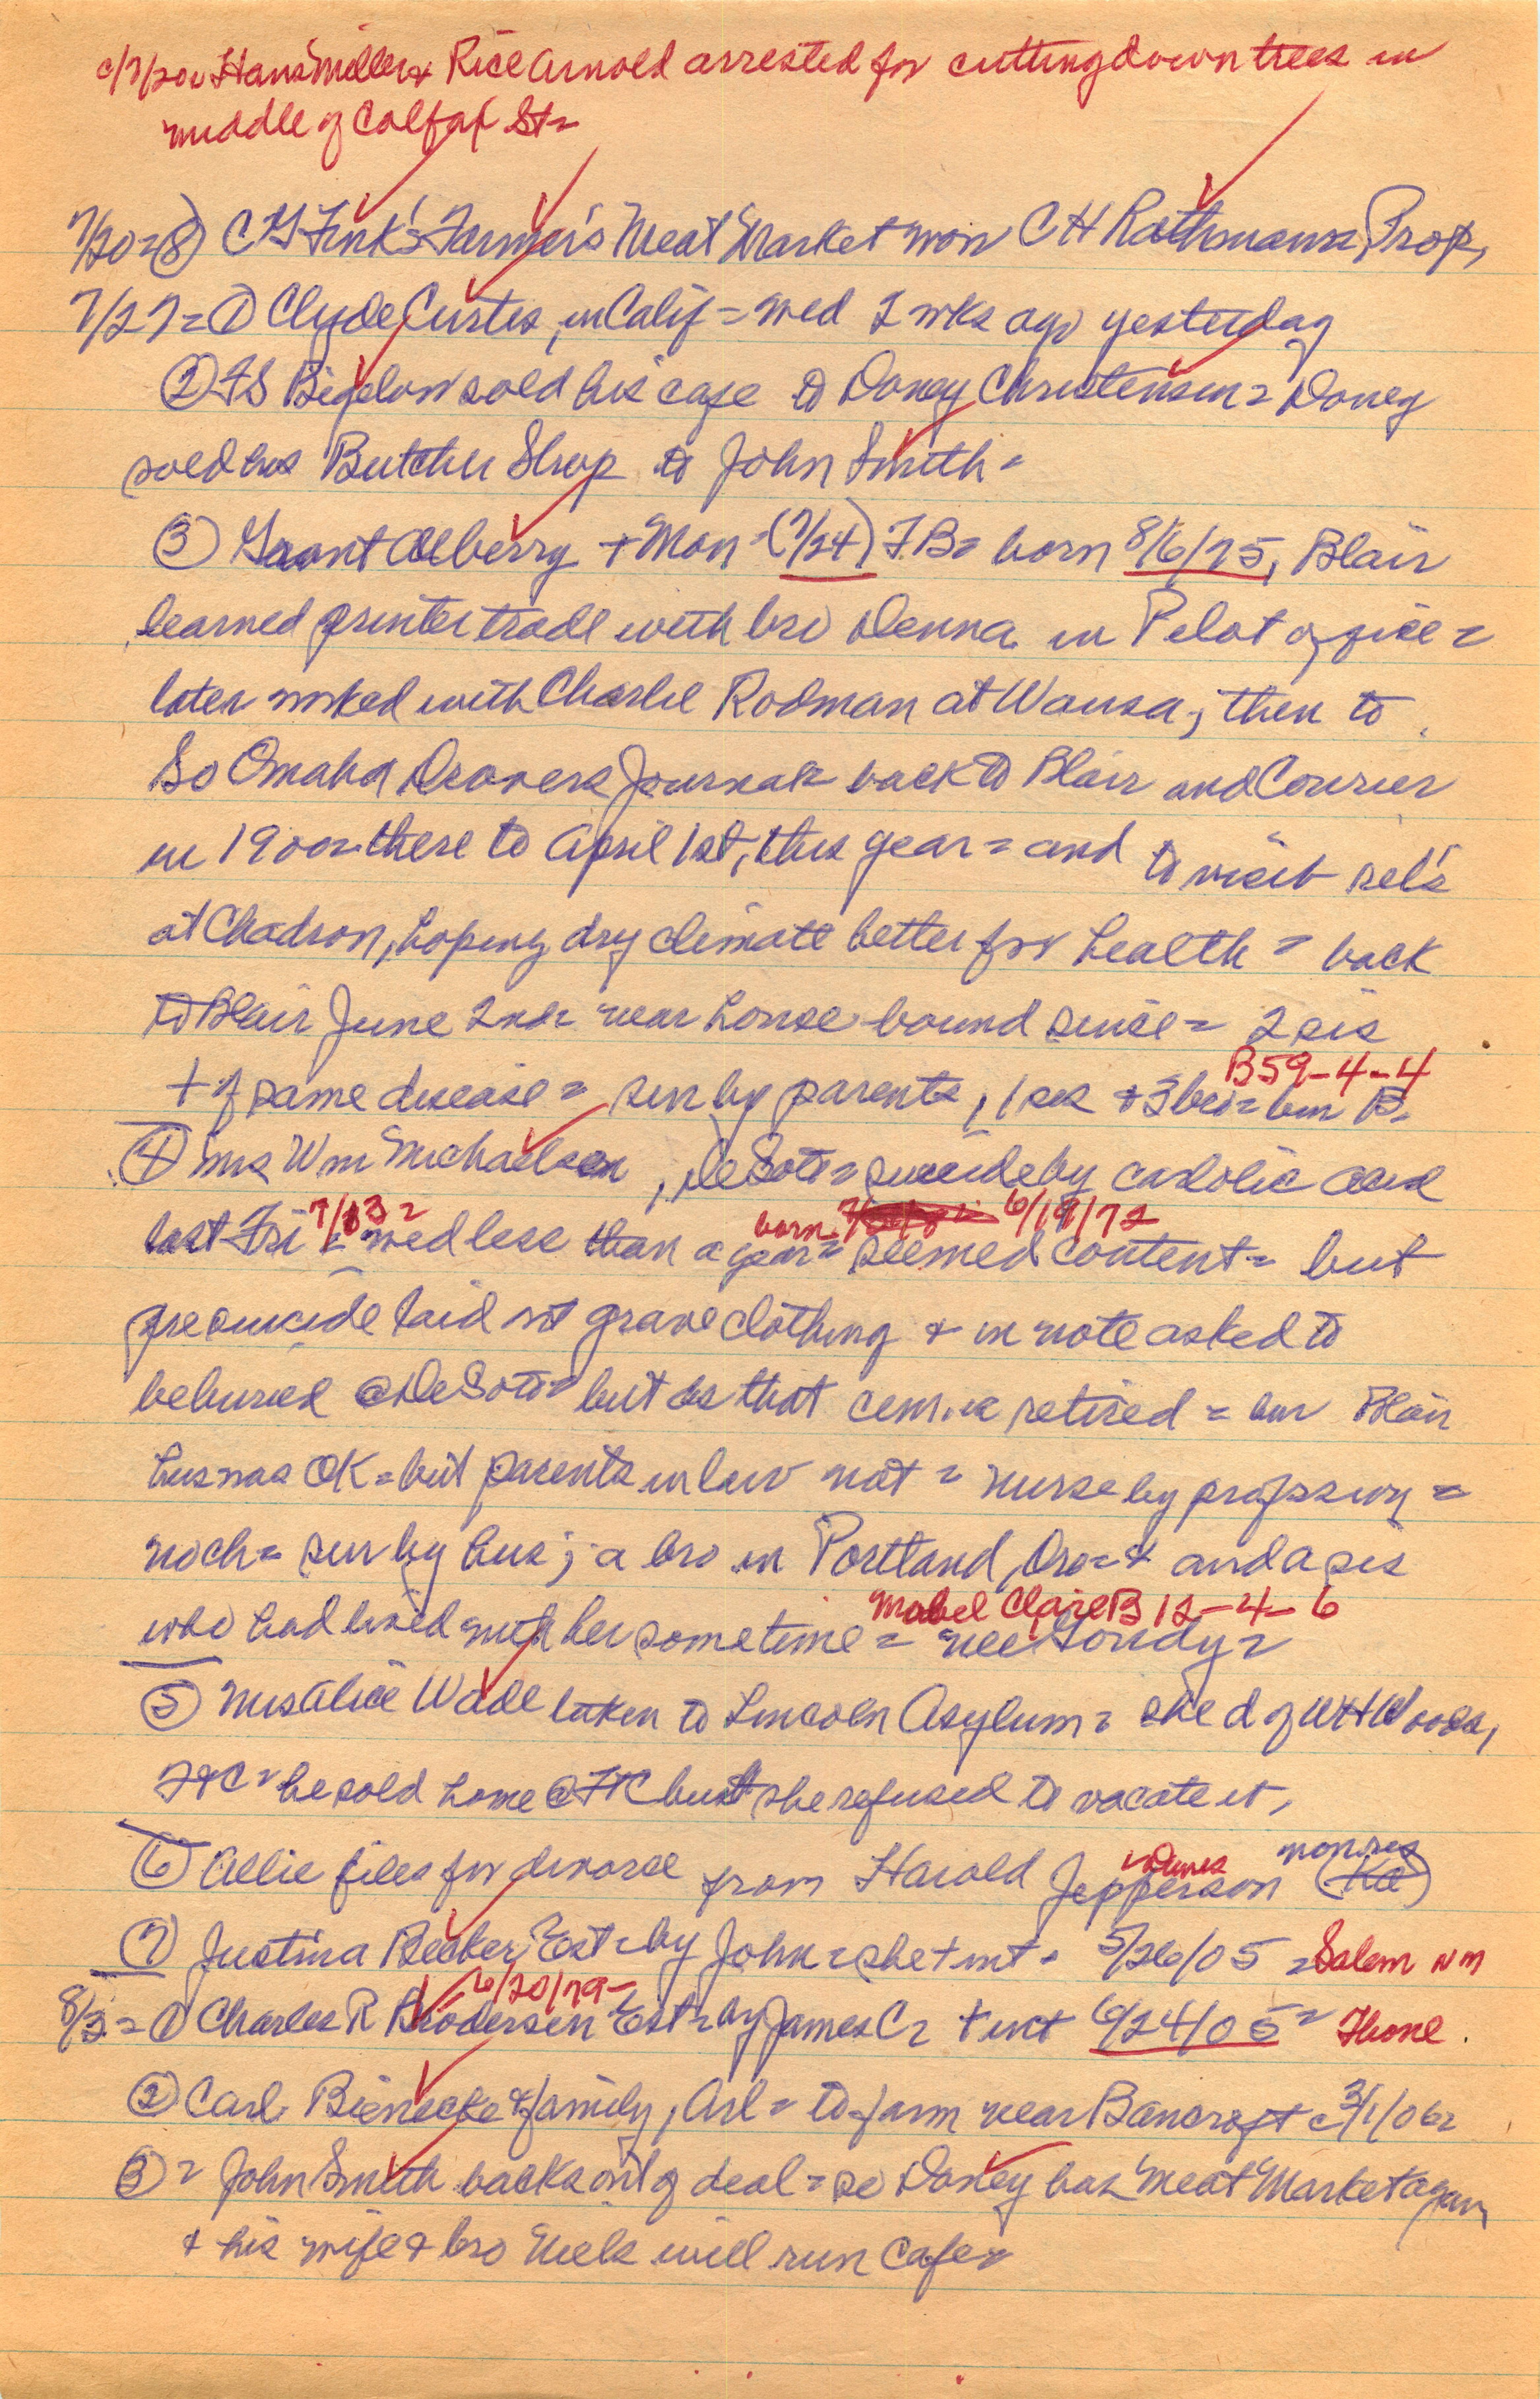 Hans Miller & Rice Arnold arrested for cutting down trees in
middle of Colfax St=
7/20=⑧ C G Fink's Farmer's Meat Market now C H Rathmann, Prop,
7/27=① Clyde Curtis, in Calif = wed 2 wks ago yesterday
② FS Bigelow sold his cafe to Doney Christensen= Doney
sold his Butcher Shop to John Smith=
③ Grant Allberry + Mon=(7/24) T.B= born 8/6/75, Blair
learned printer trade with bro Denna in Pilot office=
later worked with Charlie Rodman at Wausa; then to
So Omaha Drovers Journal= back to Blair and Courier
in 1900= there to April 1st, this year= and to visit rel's
at Chadron, hoping dry climate better for health = back
to Blair June 2nd= near house bound since= 2 sis
+ of same disease= sur by parents, 1 sis + 3 bro= bur B=
B59-4-4
④ Mrs Wm Michaelsen, DeSoto= suicide by carbolic acid
7/13= born 6/19/72
last Fri = wed less than a year= seemed content= but
pre suicide laid out grave clothing & in note asked to
be buried @ DeSoto= but as that cem. is retired = bur Blair
hus was OK= but parents in law not = nurse by profession =
no ch= sur by hus; a bro in Portland, Ore= & and a sis
Mabel Claire B 12-4-6
who had lived with her sometime = nee Gordy=
⑤ Mrs Alice Wade taken to Lincoln Asylum= she d of WH Woods,
FtC= he sold home @ FtC but she refused to vacate it,
⑥ Allie files for divorce from Harold Jepperson
⑦ Justina Becker Est= by John= she + int= 5/26/05 = Salem NM
6/20/79=
8/3=① Charles R Brodersen Est= by James C= + int 6/24/05= Thone.
② Carl Bienecke & family, Arl= to farm near Bancroft c 3/1/06=
③= John Smith backs out of deal= so Doney has Meat Market again
& his wife & bro Neels will run Cafe=